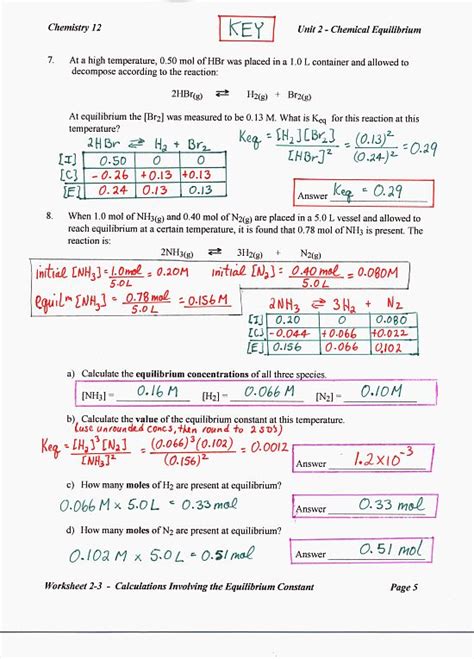 Chemistry 12 KEY Unit 2 - Chemical Equilibrium
7. At a high temperature, 0.50 mol of HBr was placed in a 1.0 L container and allowed to
decompose according to the reaction:
2HBr(g) ⇌ H2(g) + Br2(g)
At equilibrium the [Br2] was measured to be 0.13 M. What is Keq for this reaction at this
temperature?
Keq = [H2][Br2] / [HBr]² = (0.13)² / (0.24)² = 0.29
2HBr ⇌ H2 + Br2
[I] 0.50 0 0
[C] -0.26 +0.13 +0.13
[E] 0.24 0.13 0.13
Answer Keq = 0.29
8. When 1.0 mol of NH3(g) and 0.40 mol of N2(g) are placed in a 5.0 L vessel and allowed to
reach equilibrium at a certain temperature, it is found that 0.78 mol of NH3 is present. The
reaction is:
2NH3(g) ⇌ 3H2(g) + N2(g)
initial [NH3] = 1.0mol / 5.0L = 0.20M initial [N2] = 0.40 mol / 5.0L = 0.080M
equilm [NH3] = 0.78 mol / 5.0L = 0.156M
2NH3 ⇌ 3H2 + N2
[I] 0.20 0 0.080
[C] -0.044 +0.066 +0.022
[E] 0.156 0.066 0.102
a) Calculate the equilibrium concentrations of all three species.
[NH3] = 0.16 M [H2] = 0.066 M [N2] = 0.10M
b) Calculate the value of the equilibrium constant at this temperature.
(use unrounded concs, then round to 2 SD's)
Keq = [H2]³[N2] / [NH3]² = (0.066)³(0.102) / (0.156)² = 0.0012
Answer 1.2×10⁻³
c) How many moles of H2 are present at equilibrium?
0.066 M × 5.0L = 0.33 mol Answer 0.33 mol
d) How many moles of N2 are present at equilibrium?
0.102 M × 5.0L = 0.51 mol Answer 0.51 mol
Worksheet 2-3 - Calculations Involving the Equilibrium Constant Page 5